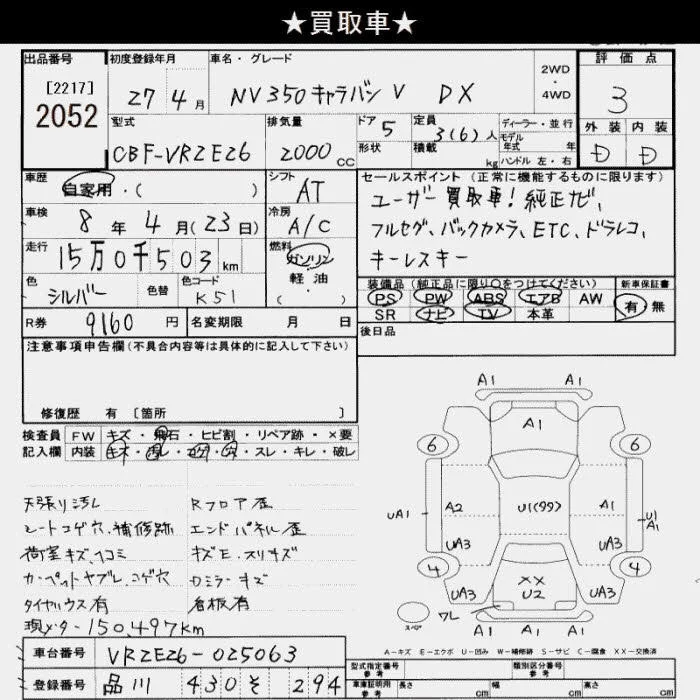 ★買取車★
出品番号 初度登録年月 車名・グレード 2WD・4WD 評価点
[2217]
2052
27 4月 NV350キャラバン V DX 3
型式 排気量 ドア 定員 ディーラー・並行 外装 内装
モデル年式 年
CBF-VR2E26 2000cc 5 3(6)人 D D
形状 積載 kg ハンドル 左・右
車歴 シフト セールスポイント(正常に機能するものに限ります)
自家用・( ) AT ユーザー買取車!純正ナビ、
車検 8年4月(23日) 冷房 A/C フルセグ、バックカメラ、ETC、ドラレコ、
走行 15万0千503km 燃料 ガソリン 軽油 ( ) キーレスキー
色 シルバー 色替 色コード K51 装備品(純正品に限り○をつけてください) 新車保証書
PS PW ABS エアB AW 有・無
SR ナビ TV 本革
R券 9160円 名変期限 月 日 後日品
注意事項申告欄(不具合内容等は具体的に記入して下さい)
修復歴 有 [箇所 ]
検査員記入欄 FW キズ・飛石・ヒビ割・リペア跡・×要
内装 キズ・汚レ・コゲ・穴・スレ・キレ・破レ
天張り汚レ Rフロア歪
シートコゲ穴、補修跡 エンドパネル歪
荷室キズ、ヘコミ キズE、スリキズ
カーペットヤブレ、コゲ穴 Rミラーキズ
タイヤハウス有 看板有
現メーター150,497km
A1 A1
A1
6 6
UA1 A2 U1(99) A1 U1 A1
UA3 UA3
4 4
UA3 XX U2 UA3
スペア WL
A1 A1 A1
A-キズ E-エクボ U-凹み W-補修跡 S-サビ C-腐食 XX-交換済
車台番号 VR2E26-025063
登録番号 品川 430 そ 294
型式指定番号 参考 類別区分番号 参考
車庫証明用 参考 長さ cm 幅 cm 高さ cm